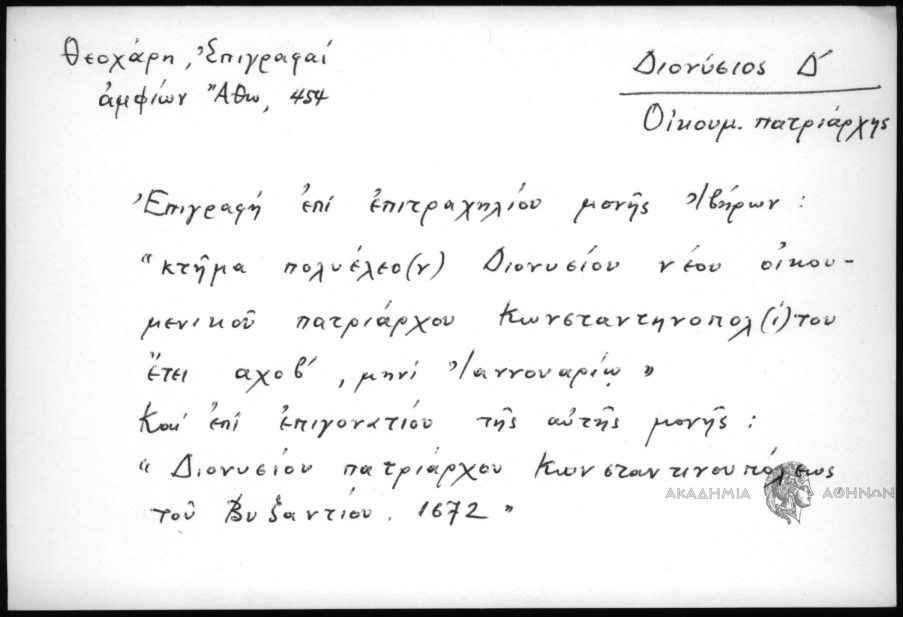 Θεοχάρη, Ἐπιγραφαί
ἀμφίων Ἄθω, 454
Διονύσιος Δ΄
Οἰκουμ. πατριάρχης
Ἐπιγραφή ἐπί ἐπιτραχηλίου μονῆς Ἰβήρων :
"κτῆμα πολυέλεο(ν) Διονυσίου νέου οἰκου-
μενικοῦ πατριάρχου Κωνσταντηνοπολ(ί)του
ἔτει αχοβ΄, μηνί Ἰαννουαρίῳ"
Καί ἐπί ἐπιγονατίου τῆς αὐτῆς μονῆς :
"Διονυσίου πατριάρχου Κωνσταντινουπόλεως
τοῦ Βυζαντίου. 1672"
ΑΚΑΔΗΜΙΑ ΑΘΗΝΩΝ